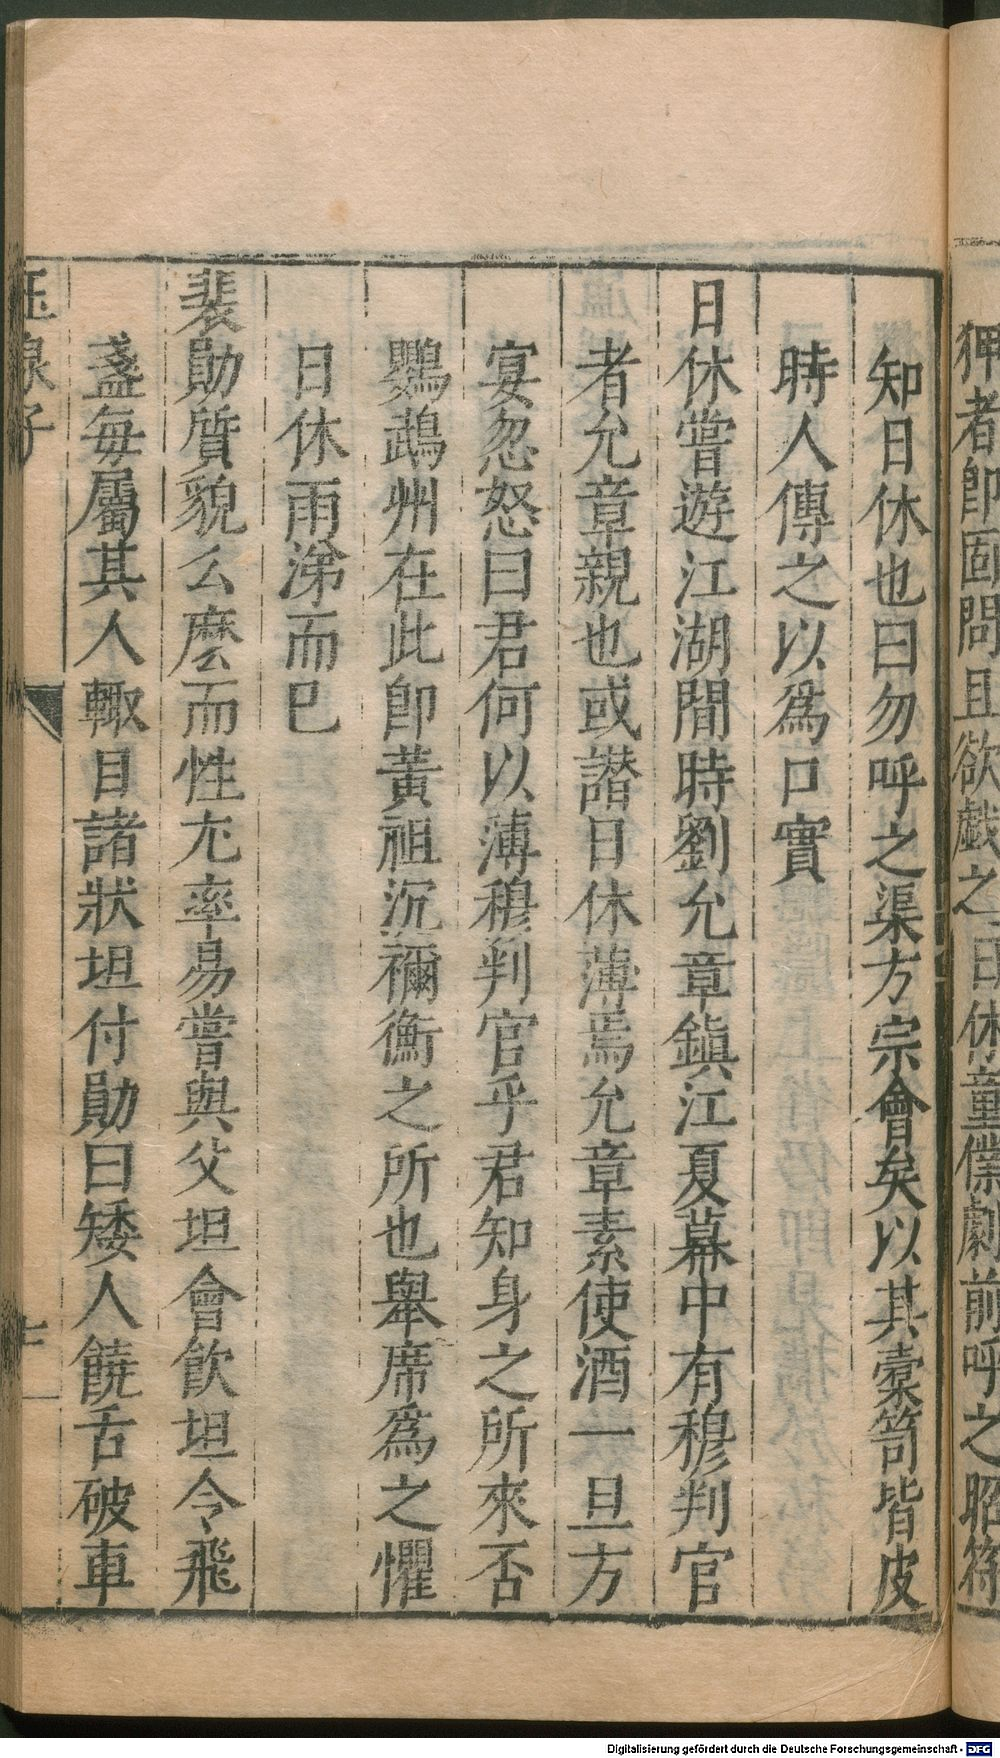 狎者卽頤問且欲戲之日休童僕劇前呼之昭符
知日休也曰勿呼之渠方宗會矣以其橐笥皆皮
時人傳之以爲口實
日休嘗遊江湖間時劉允章鎭江夏幕中有穆判官
者允章親也或譖日休薄焉允章素使酒一旦方
宴忽怒曰君何以薄穆判官乎君知身之所來否
鸚鵡州在此卽黃祖沉禰衡之所也舉席爲之懼
日休雨涕而已
裴勛質貌么麽而性尤率易嘗與父坦會飮坦令飛
盞每屬其人輙目諸狀坦付勛曰矮人饒舌破車
玉泉子
Digitalisierung gefördert durch die Deutsche Forschungsgemeinschaft - DFG